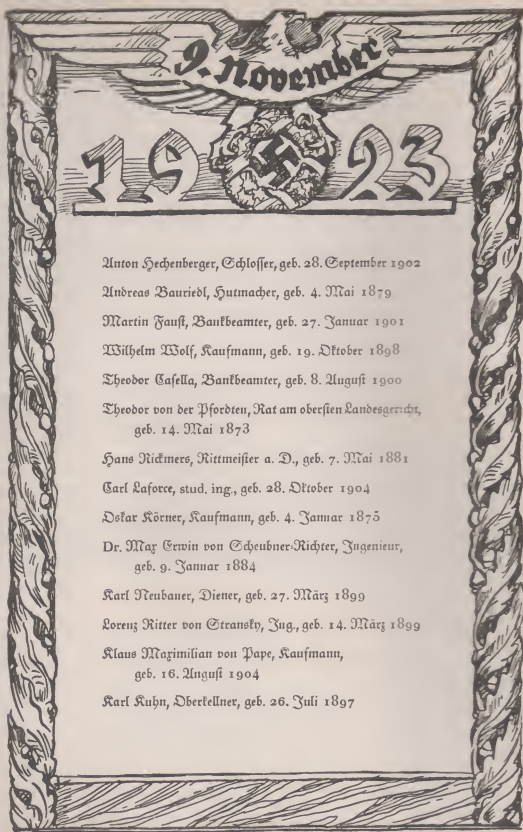 9. November
1923
Anton Hechenberger, Schlosser, geb. 28. September 1902
Andreas Bauriedl, Hutmacher, geb. 4. Mai 1879
Martin Faust, Bankbeamter, geb. 27. Januar 1901
Wilhelm Wolf, Kaufmann, geb. 19. Oktober 1898
Theodor Casella, Bankbeamter, geb. 8. August 1900
Theodor von der Pfordten, Rat am obersten Landesgericht,
geb. 14. Mai 1873
Hans Rickmers, Rittmeister a. D., geb. 7. Mai 1881
Carl Laforce, stud. ing., geb. 28. Oktober 1904
Oskar Körner, Kaufmann, geb. 4. Januar 1875
Dr. Max Erwin von Scheubner-Richter, Ingenieur,
geb. 9. Januar 1884
Karl Neubauer, Diener, geb. 27. März 1899
Lorenz Ritter von Stransky, Ing., geb. 14. März 1899
Klaus Maximilian von Pape, Kaufmann,
geb. 16. August 1904
Karl Kuhn, Oberkellner, geb. 26. Juli 1897